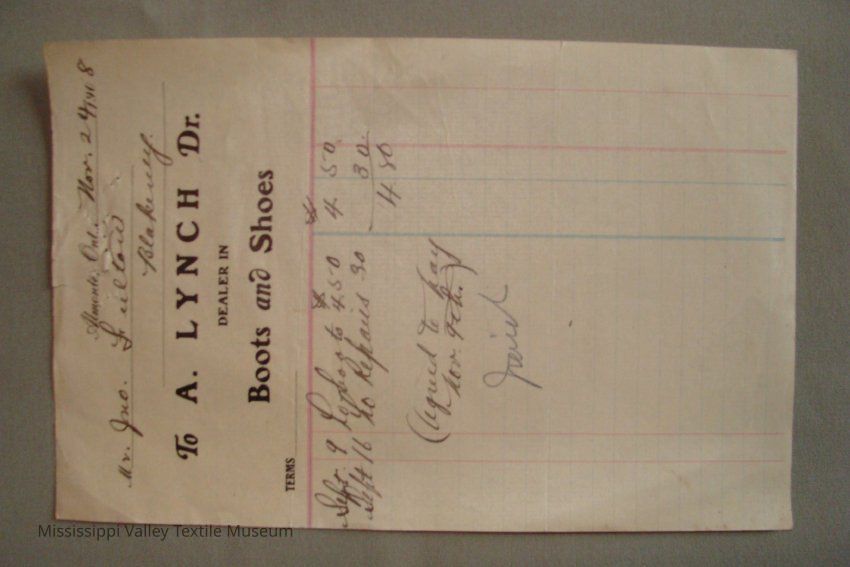 Almonte, Ont., Nov. 24 1908
Mr. Jno. Fulton
Blakeney.
To A. LYNCH Dr.
DEALER IN
Boots and Shoes
TERMS
Sept. 9 To boots 4.50 $4 50
Sept 16 To Repairs 30 30
4 80
(Agreed to pay
Nov. 9th.)
Paid
Mississippi Valley Textile Museum